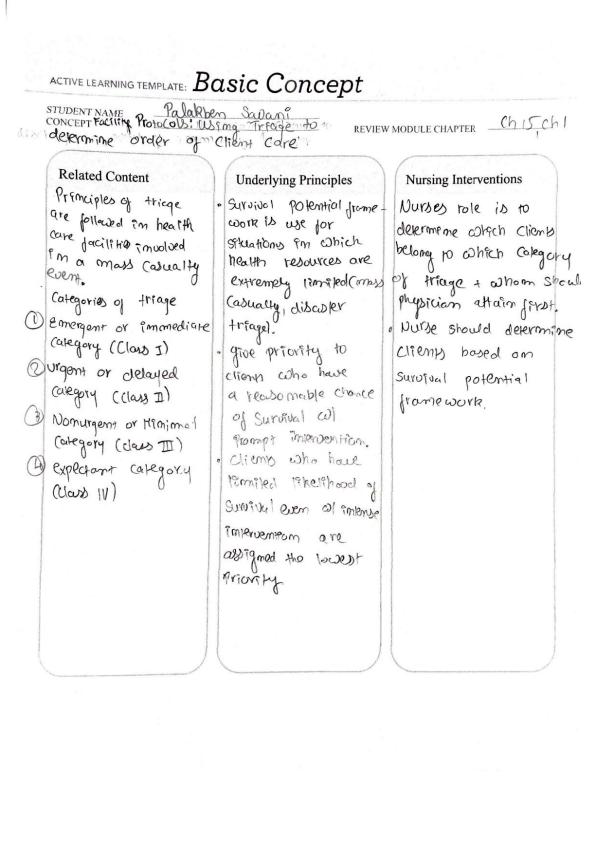 ACTIVE LEARNING TEMPLATE: Basic Concept
STUDENT NAME Palakben Savani
CONCEPT Facility Protocols: Using Triage to
determine order of Client Care
REVIEW MODULE CHAPTER Ch 15, Ch 1
Related Content
Principles of triage
are followed in health
care facilities involved
in a mass casualty
event.
Categories of triage
① Emergent or immediate
category (Class I)
② Urgent or delayed
category (Class II)
③ Nonurgent or Minimal
Category (class III)
④ Expectant category
(Class IV)
Underlying Principles
• Survival potential frame-
work is use for
situations in which
health resources are
extremely limited (mass
Casualty, disaster
triage).
• give priority to
clients who have
a reasonable chance
of Survival w/
Prompt intervention.
• Clients who have
limited likelihood of
Survival even w/ intense
intervention are
assigned the lowest
Priority
Nursing Interventions
Nurses role is to
determine which Clients
belong to which category
of triage + whom should
physician attain first.
• Nurse should determine
Clients based on
Survival potential
framework.